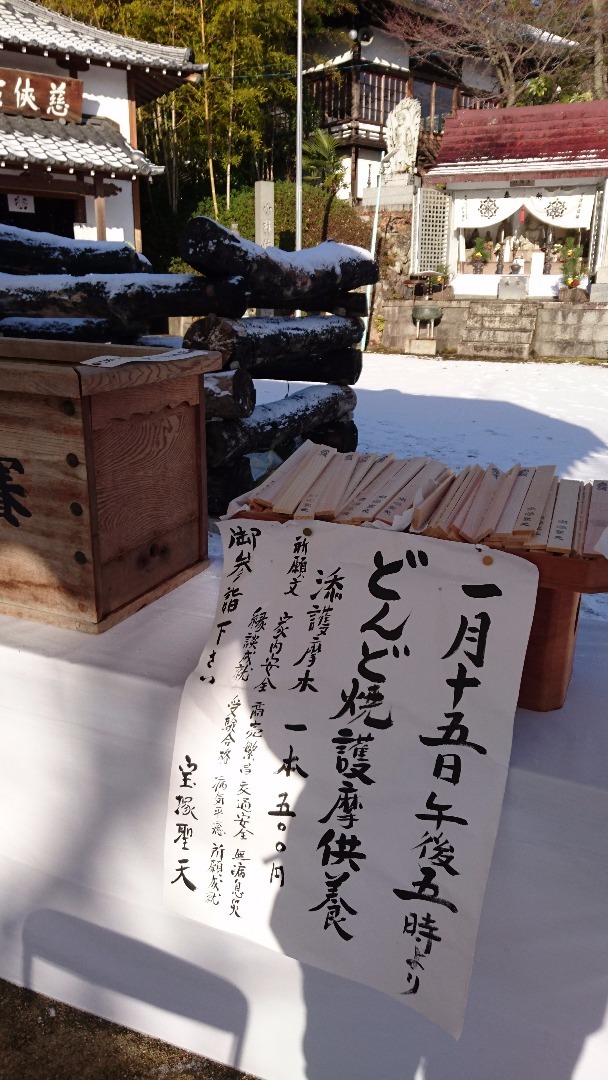 一月十五日午後五時より
どんど焼護摩供養
添護摩木 一本 五〇〇円
祈願文
家内安全 商売繁昌 交通安全 無病息災
縁談成就 受験合格 病気平癒 祈願成就
御参詣下さい
宝塚聖天
慈侠